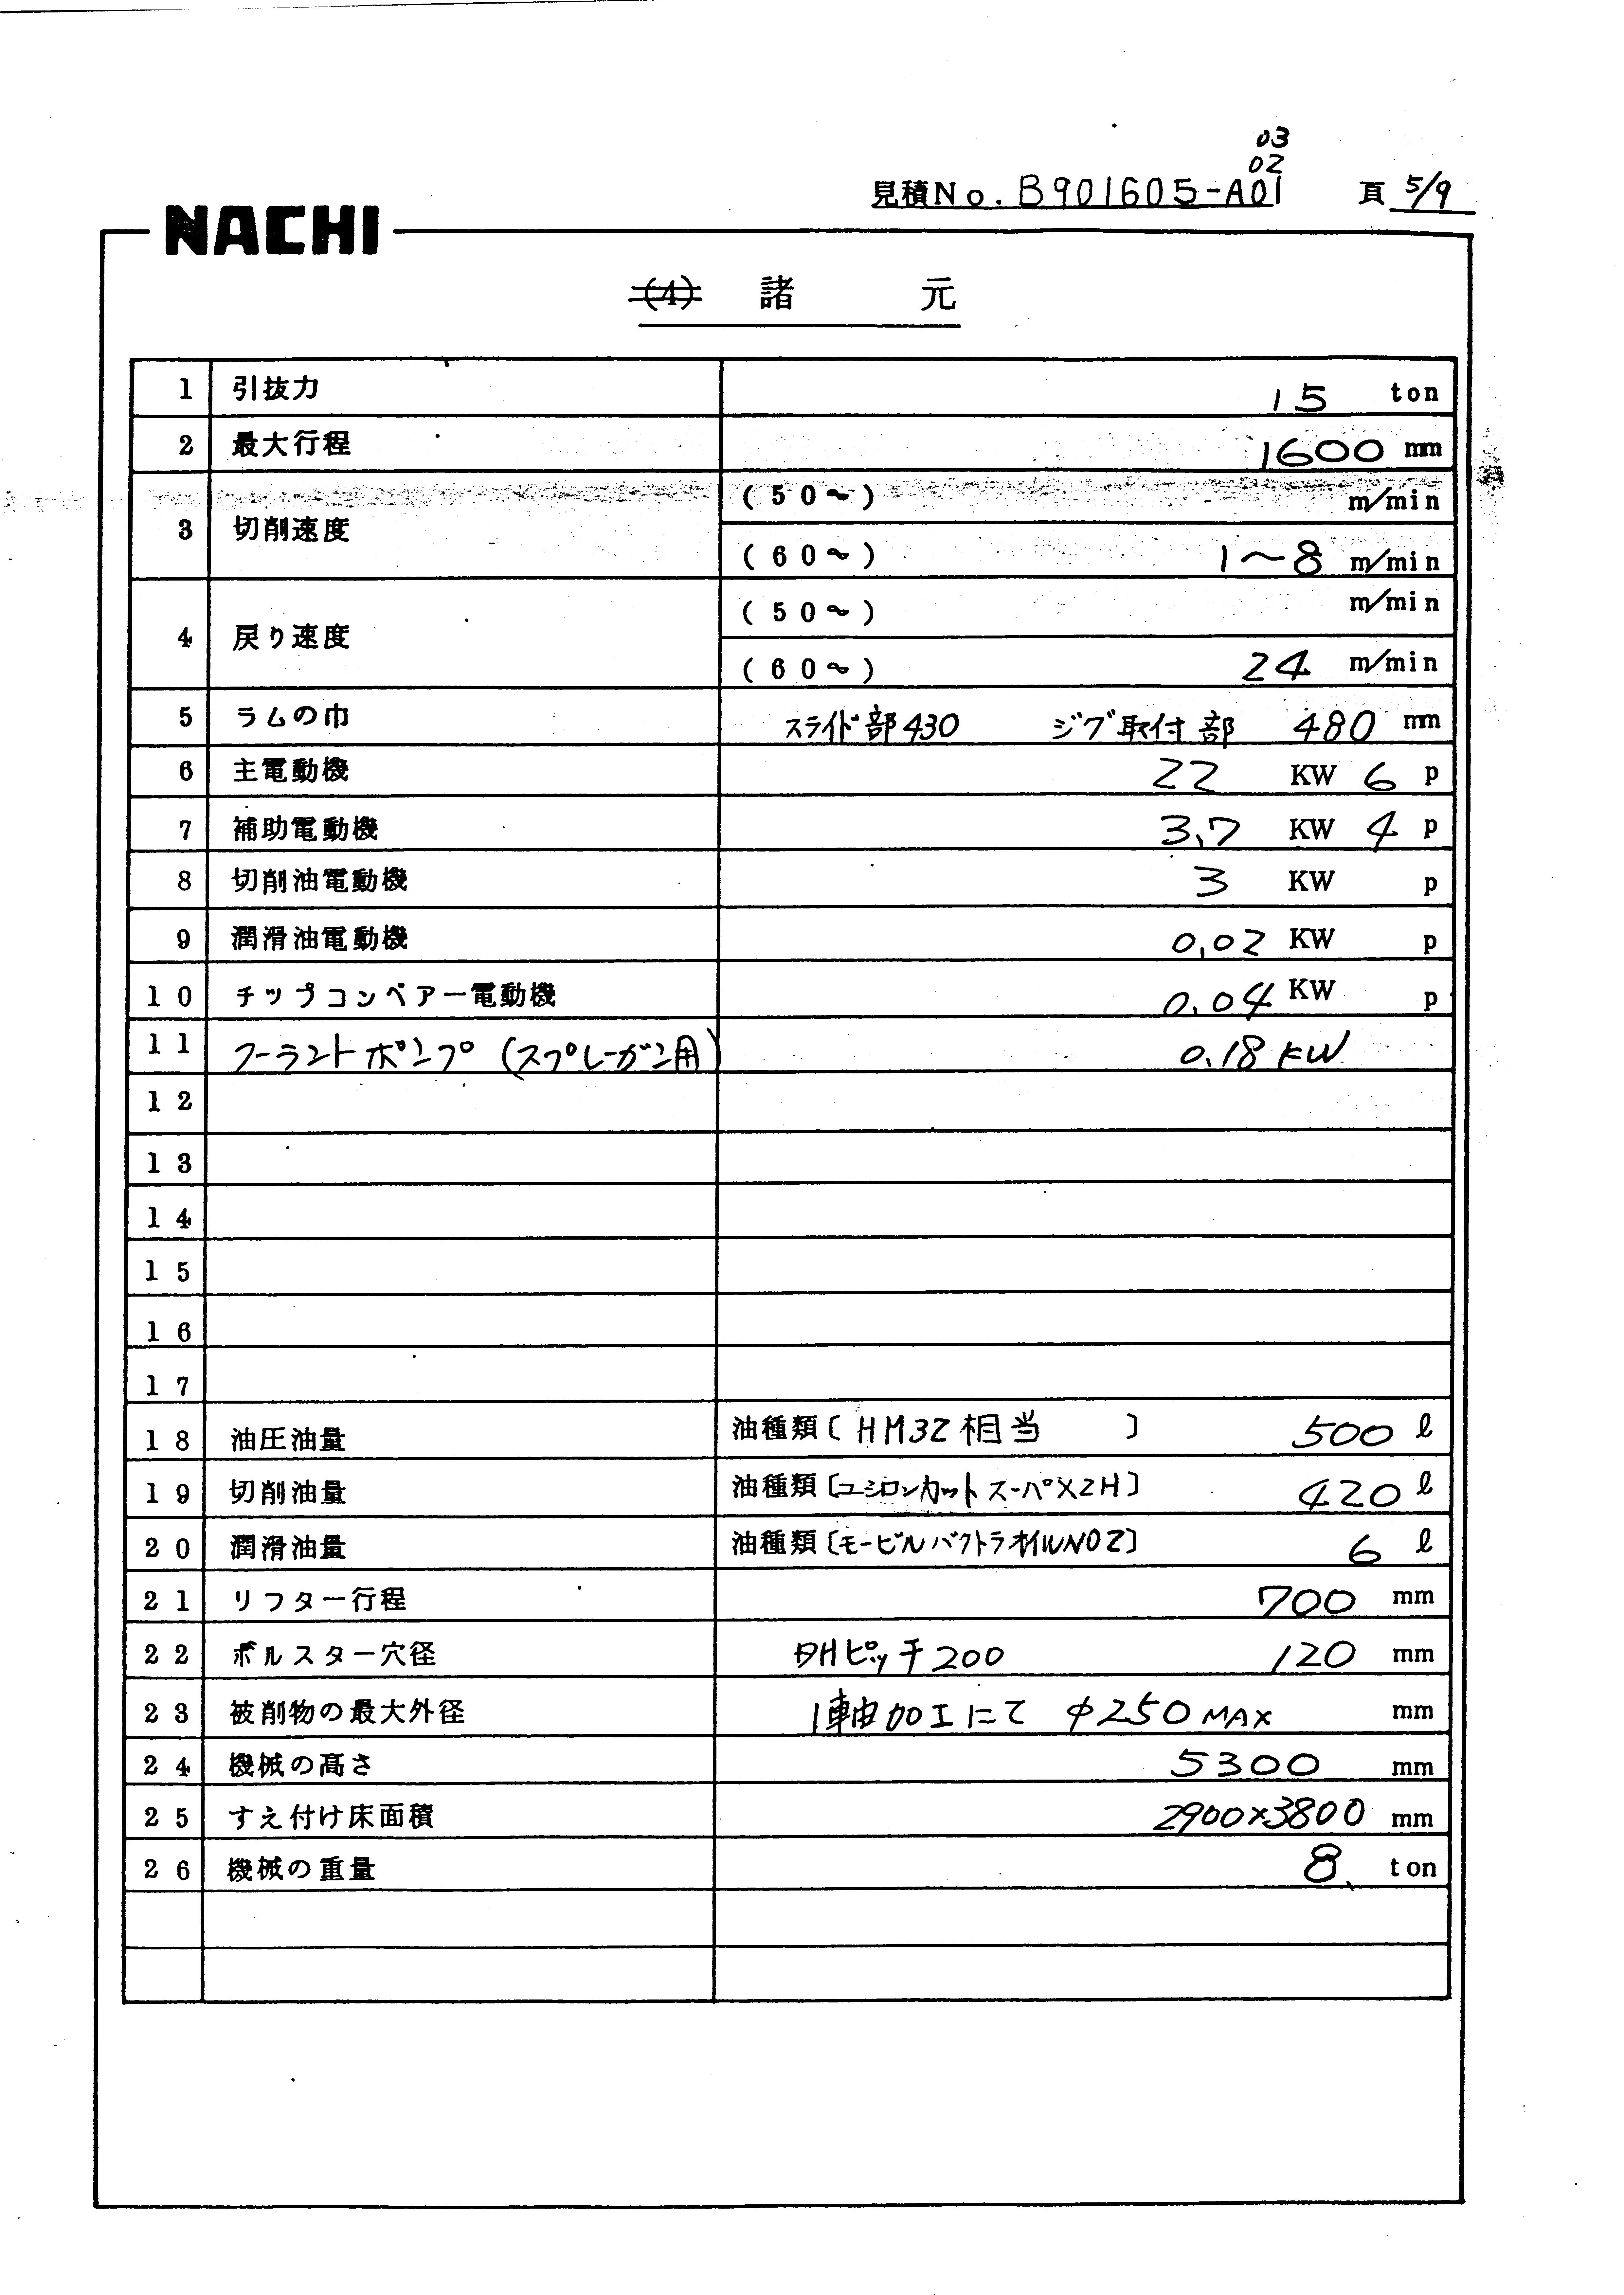 03
02
見積No. B901605-A01 頁 5/9
NACHI
(4) 諸 元
1 引抜力 15 ton
2 最大行程 1600 mm
3 切削速度 (50~) m/min
(60~) 1~8 m/min
4 戻り速度 (50~) m/min
(60~) 24 m/min
5 ラムの巾 スライド部430 ジグ取付部 480 mm
6 主電動機 22 KW 6 p
7 補助電動機 3.7 KW 4 p
8 切削油電動機 3 KW p
9 潤滑油電動機 0.02 KW p
10 チップコンベアー電動機 0.04 KW p
11 クーラントポンプ(スプレーガン用) 0.18 KW
12
13
14
15
16
17
18 油圧油量 油種類〔HM32相当 〕 500 ℓ
19 切削油量 油種類〔ユシロンカットスーパX2H〕 420 ℓ
20 潤滑油量 油種類〔モービルバクトラオイルNO2〕 6 ℓ
21 リフター行程 700 mm
22 ボルスター穴径 ピッチ200 120 mm
23 被削物の最大外径 1軸加工にて φ250MAX mm
24 機械の高さ 5300 mm
25 すえ付け床面積 2900×3800 mm
26 機械の重量 8. ton